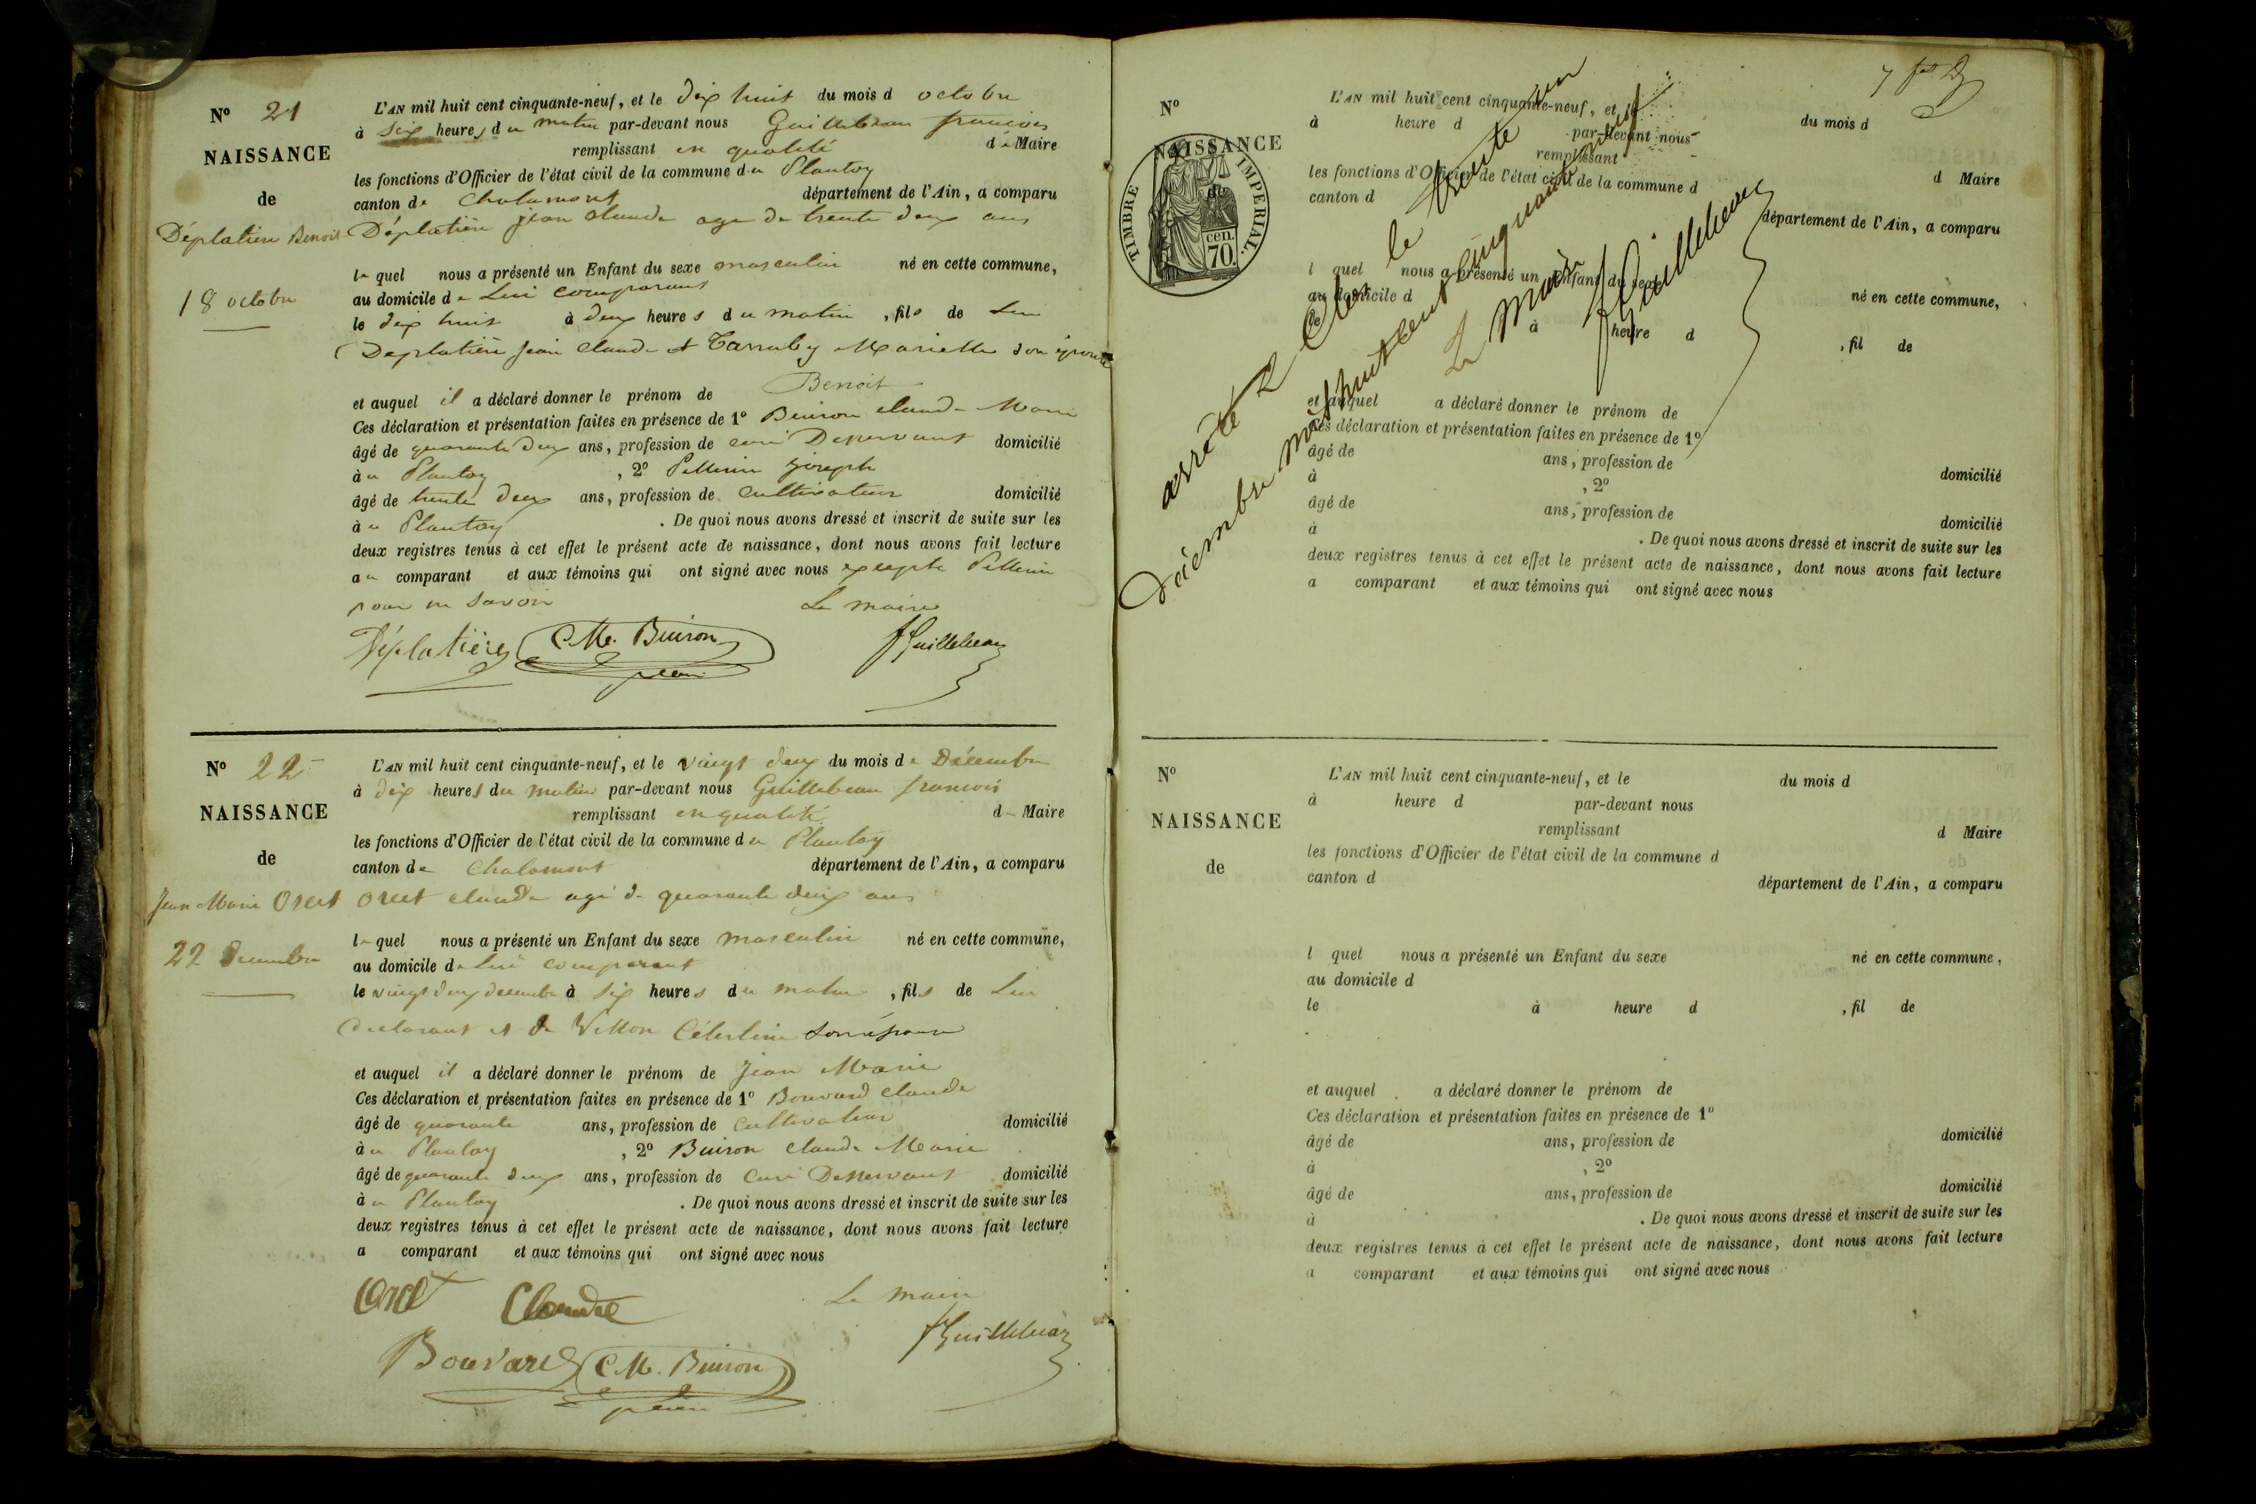 N° 21
NAISSANCE
de
Déplatière Benoit
18 octobre
L'AN mil huit cent cinquante-neuf, et le dix huit du mois d octobre
à six heures du matin par-devant nous Guillebeau françois
remplissant en qualité de Maire
les fonctions d'Officier de l'état civil de la commune du Plantay
canton de Chalamont département de l'Ain, a comparu
Déplatière jean claude age de trente deux ans
lequel nous a présenté un Enfant du sexe masculin né en cette commune,
au domicile de Lui comparant
le dix huit à deux heures du matin, fils de Lui
Deplatière Jean Claude et Mariette son épouse
et auquel il a déclaré donner le prénom de Benoit
Ces déclaration et présentation faites en présence de 1° Buiron claude Marie
âgé de quarante deux ans, profession de curé Desservant domicilié
au Plantay, 2° Pellerin joseph
âgé de trente deux ans, profession de cultivateur domicilié
au Plantay. De quoi nous avons dressé et inscrit de suite sur les
deux registres tenus à cet effet le présent acte de naissance, dont nous avons fait lecture
au comparant et aux témoins qui ont signé avec nous excepte Pellerin
pour ne savoir
Le maire
Déplatière C. M. Buiron fGuillebeau
N° 22
NAISSANCE
de
Jean Marie Oret
22 Decembre
L'AN mil huit cent cinquante-neuf, et le vingt deux du mois de Décembre
à dix heures du matin par-devant nous Guillebeau francois
remplissant en qualité de Maire
les fonctions d'Officier de l'état civil de la commune du Plantay
canton de Chalamont département de l'Ain, a comparu
claude agé de quarante deux ans
lequel nous a présenté un Enfant du sexe masculin né en cette commune,
au domicile de Lui comparant
le vingt deux decembre à six heures du matin, fils de Lui
declarant et de Célestine son épouse
et auquel il a déclaré donner le prénom de Jean Marie
Ces déclaration et présentation faites en présence de 1° Bouvard claude
âgé de quarante ans, profession de cultivateur domicilié
au Plantay, 2° Buiron claude Marie
âgé de quarante deux ans, profession de curé Desservant domicilié
au Plantay. De quoi nous avons dressé et inscrit de suite sur les
deux registres tenus à cet effet le présent acte de naissance, dont nous avons fait lecture
a comparant et aux témoins qui ont signé avec nous
Claude Le maire
fGuillebeau
Bouvard C. M. Buiron
N°
NAISSANCE
de
TIMBRE IMPERIAL.
70 cen.
L'AN mil huit cent cinquante-neuf, et le du mois d
à heure d par-devant nous
remplissant d Maire
les fonctions d'Officier de l'état civil de la commune d
canton d département de l'Ain, a comparu
l quel nous a présenté un Enfant du sexe né en cette commune,
au domicile d
le à heure d , fil de
et auquel a déclaré donner le prénom de
Ces déclaration et présentation faites en présence de 1°
âgé de ans, profession de domicilié
à , 2°
âgé de ans, profession de domicilié
à . De quoi nous avons dressé et inscrit de suite sur les
deux registres tenus à cet effet le présent acte de naissance, dont nous avons fait lecture
a comparant et aux témoins qui ont signé avec nous
arrêté & Clos le trente un
Décembre mil huit cent cinquante neuf
Le Maire
fGuillebeau
N°
NAISSANCE
de
L'AN mil huit cent cinquante-neuf, et le du mois d
à heure d par-devant nous
remplissant d Maire
les fonctions d'Officier de l'état civil de la commune d
canton d département de l'Ain, a comparu
l quel nous a présenté un Enfant du sexe né en cette commune,
au domicile d
le à heure d , fil de
et auquel a déclaré donner le prénom de
Ces déclaration et présentation faites en présence de 1°
âgé de ans, profession de domicilié
à , 2°
âgé de ans, profession de domicilié
à . De quoi nous avons dressé et inscrit de suite sur les
deux registres tenus à cet effet le présent acte de naissance, dont nous avons fait lecture
a comparant et aux témoins qui ont signé avec nous